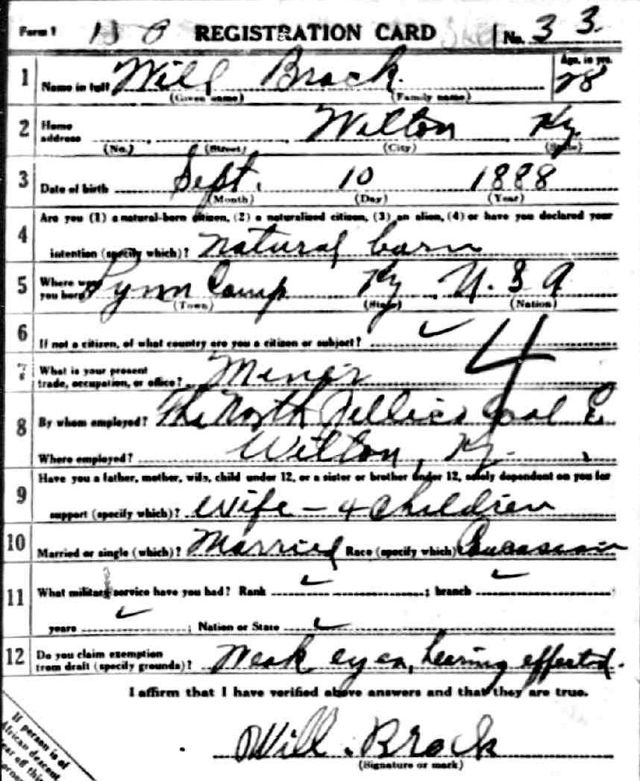 Form 1 REGISTRATION CARD No. 33
1 Name in full Will Brock Age, in yrs. 28
(Given name) (Family name)
2 Home address Wilton Ky
(No.) (Street) (City) (State)
3 Date of birth Sept. 10 1888
(Month) (Day) (Year)
Are you (1) a natural-born citizen, (2) a naturalized citizen, (3) an alien, (4) or have you declared your
4 intention (specify which)? natural born
5 Where were you born? Lynn Camp Ky U.S A
(Town) (State) (Nation)
6 If not a citizen, of what country are you a citizen or subject? ✓
7 What is your present trade, occupation, or office? Miner 4
8 By whom employed? The North Jellico Coal C
Where employed? Wilton, Ky.
Have you a father, mother, wife, child under 12, or a sister or brother under 12, solely dependent on you for
9 support (specify which)? Wife – 4 children
10 Married or single (which)? Married Race (specify which)? Caucasian
11 What military service have you had? Rank ✓ ; branch ✓
years ✓ ; Nation or State ✓
12 Do you claim exemption from draft (specify grounds)? Weak eyes, hearing effected.
I affirm that I have verified above answers and that they are true.
Will. Brock
(Signature or mark)
If person is of
African descent
tear off this